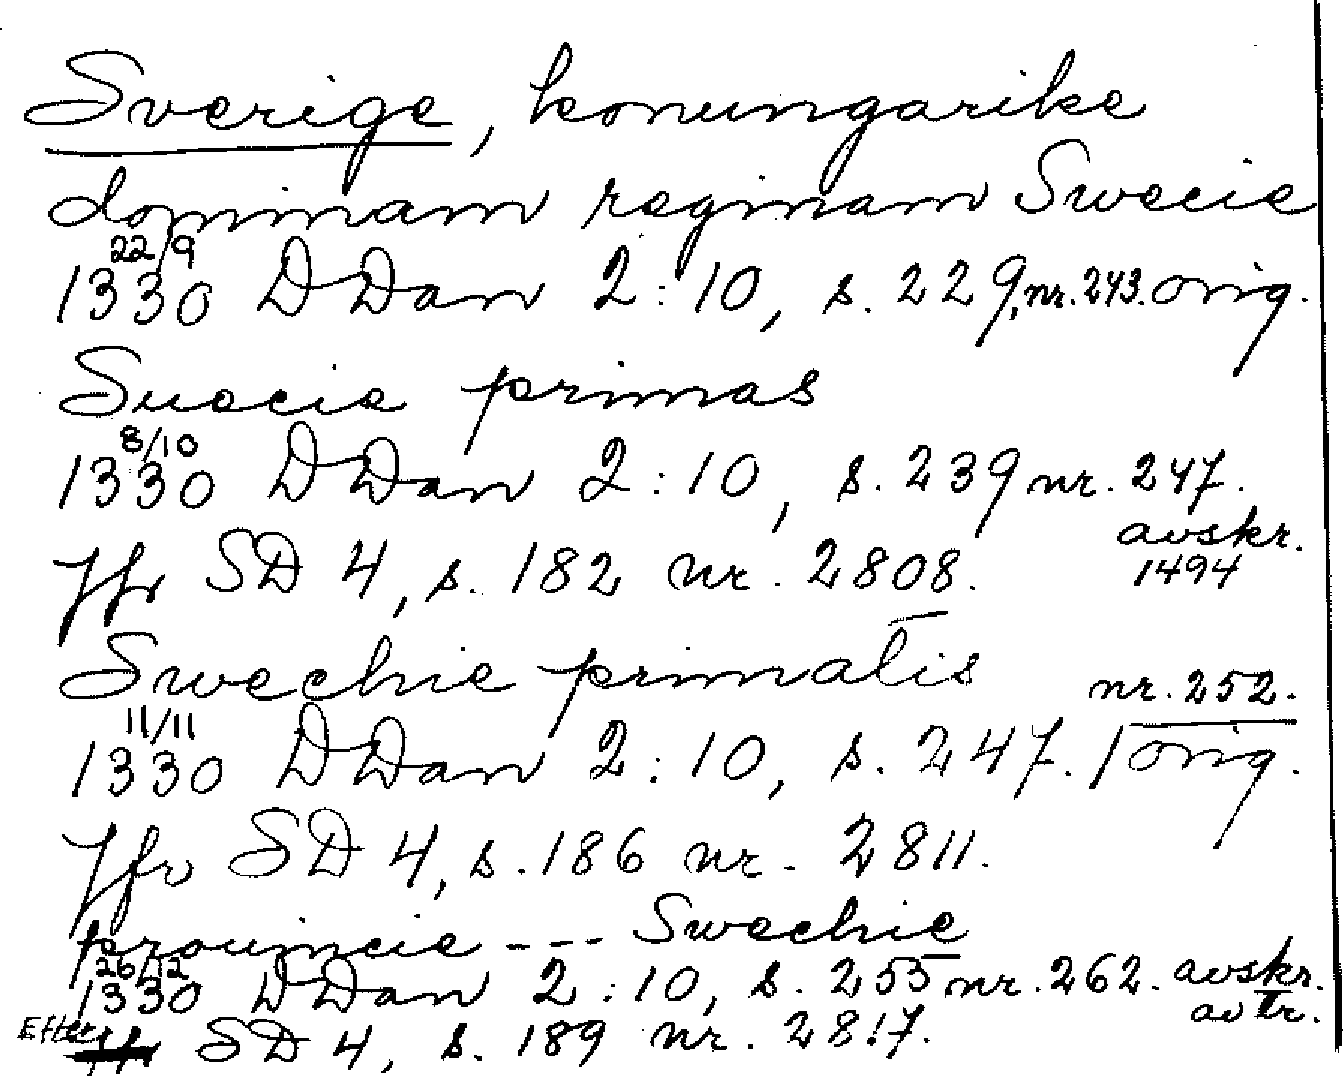 Sverige, konungarike
dominam reginam Swecie
22/9
1330 DDan 2:10, s. 229, nr. 243. orig.
Suecie primas
8/10
1330 DDan 2:10, s. 239 nr. 247.
avskr.
1494
Jfr SD 4, s. 182 nr. 2808.
Swechie primatis
nr. 252.
11/11
1330 DDan 2:10, s. 247. / orig.
Jfr SD 4, s. 186 nr. 2811.
prouincie --- Swechie
26/12
1330 DDan 2:10, s. 255 nr. 262. avskr.
av tr.
Efter SD 4, s. 189 nr. 2817.